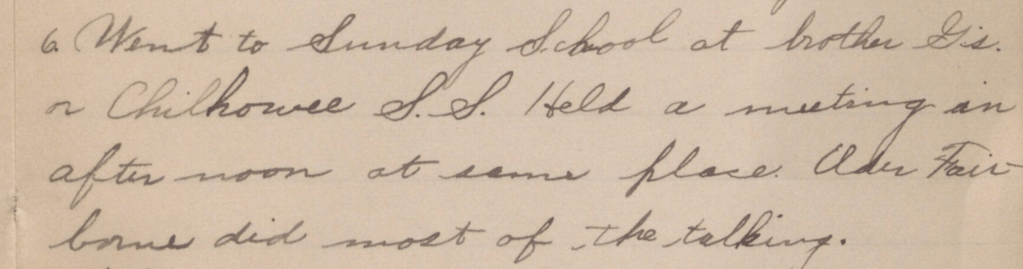 6. Went to Sunday School at brother G's.
or Chilhowee S.S. Held a meeting in
after noon at same place. Elder Fair-
borne did most of the talking.